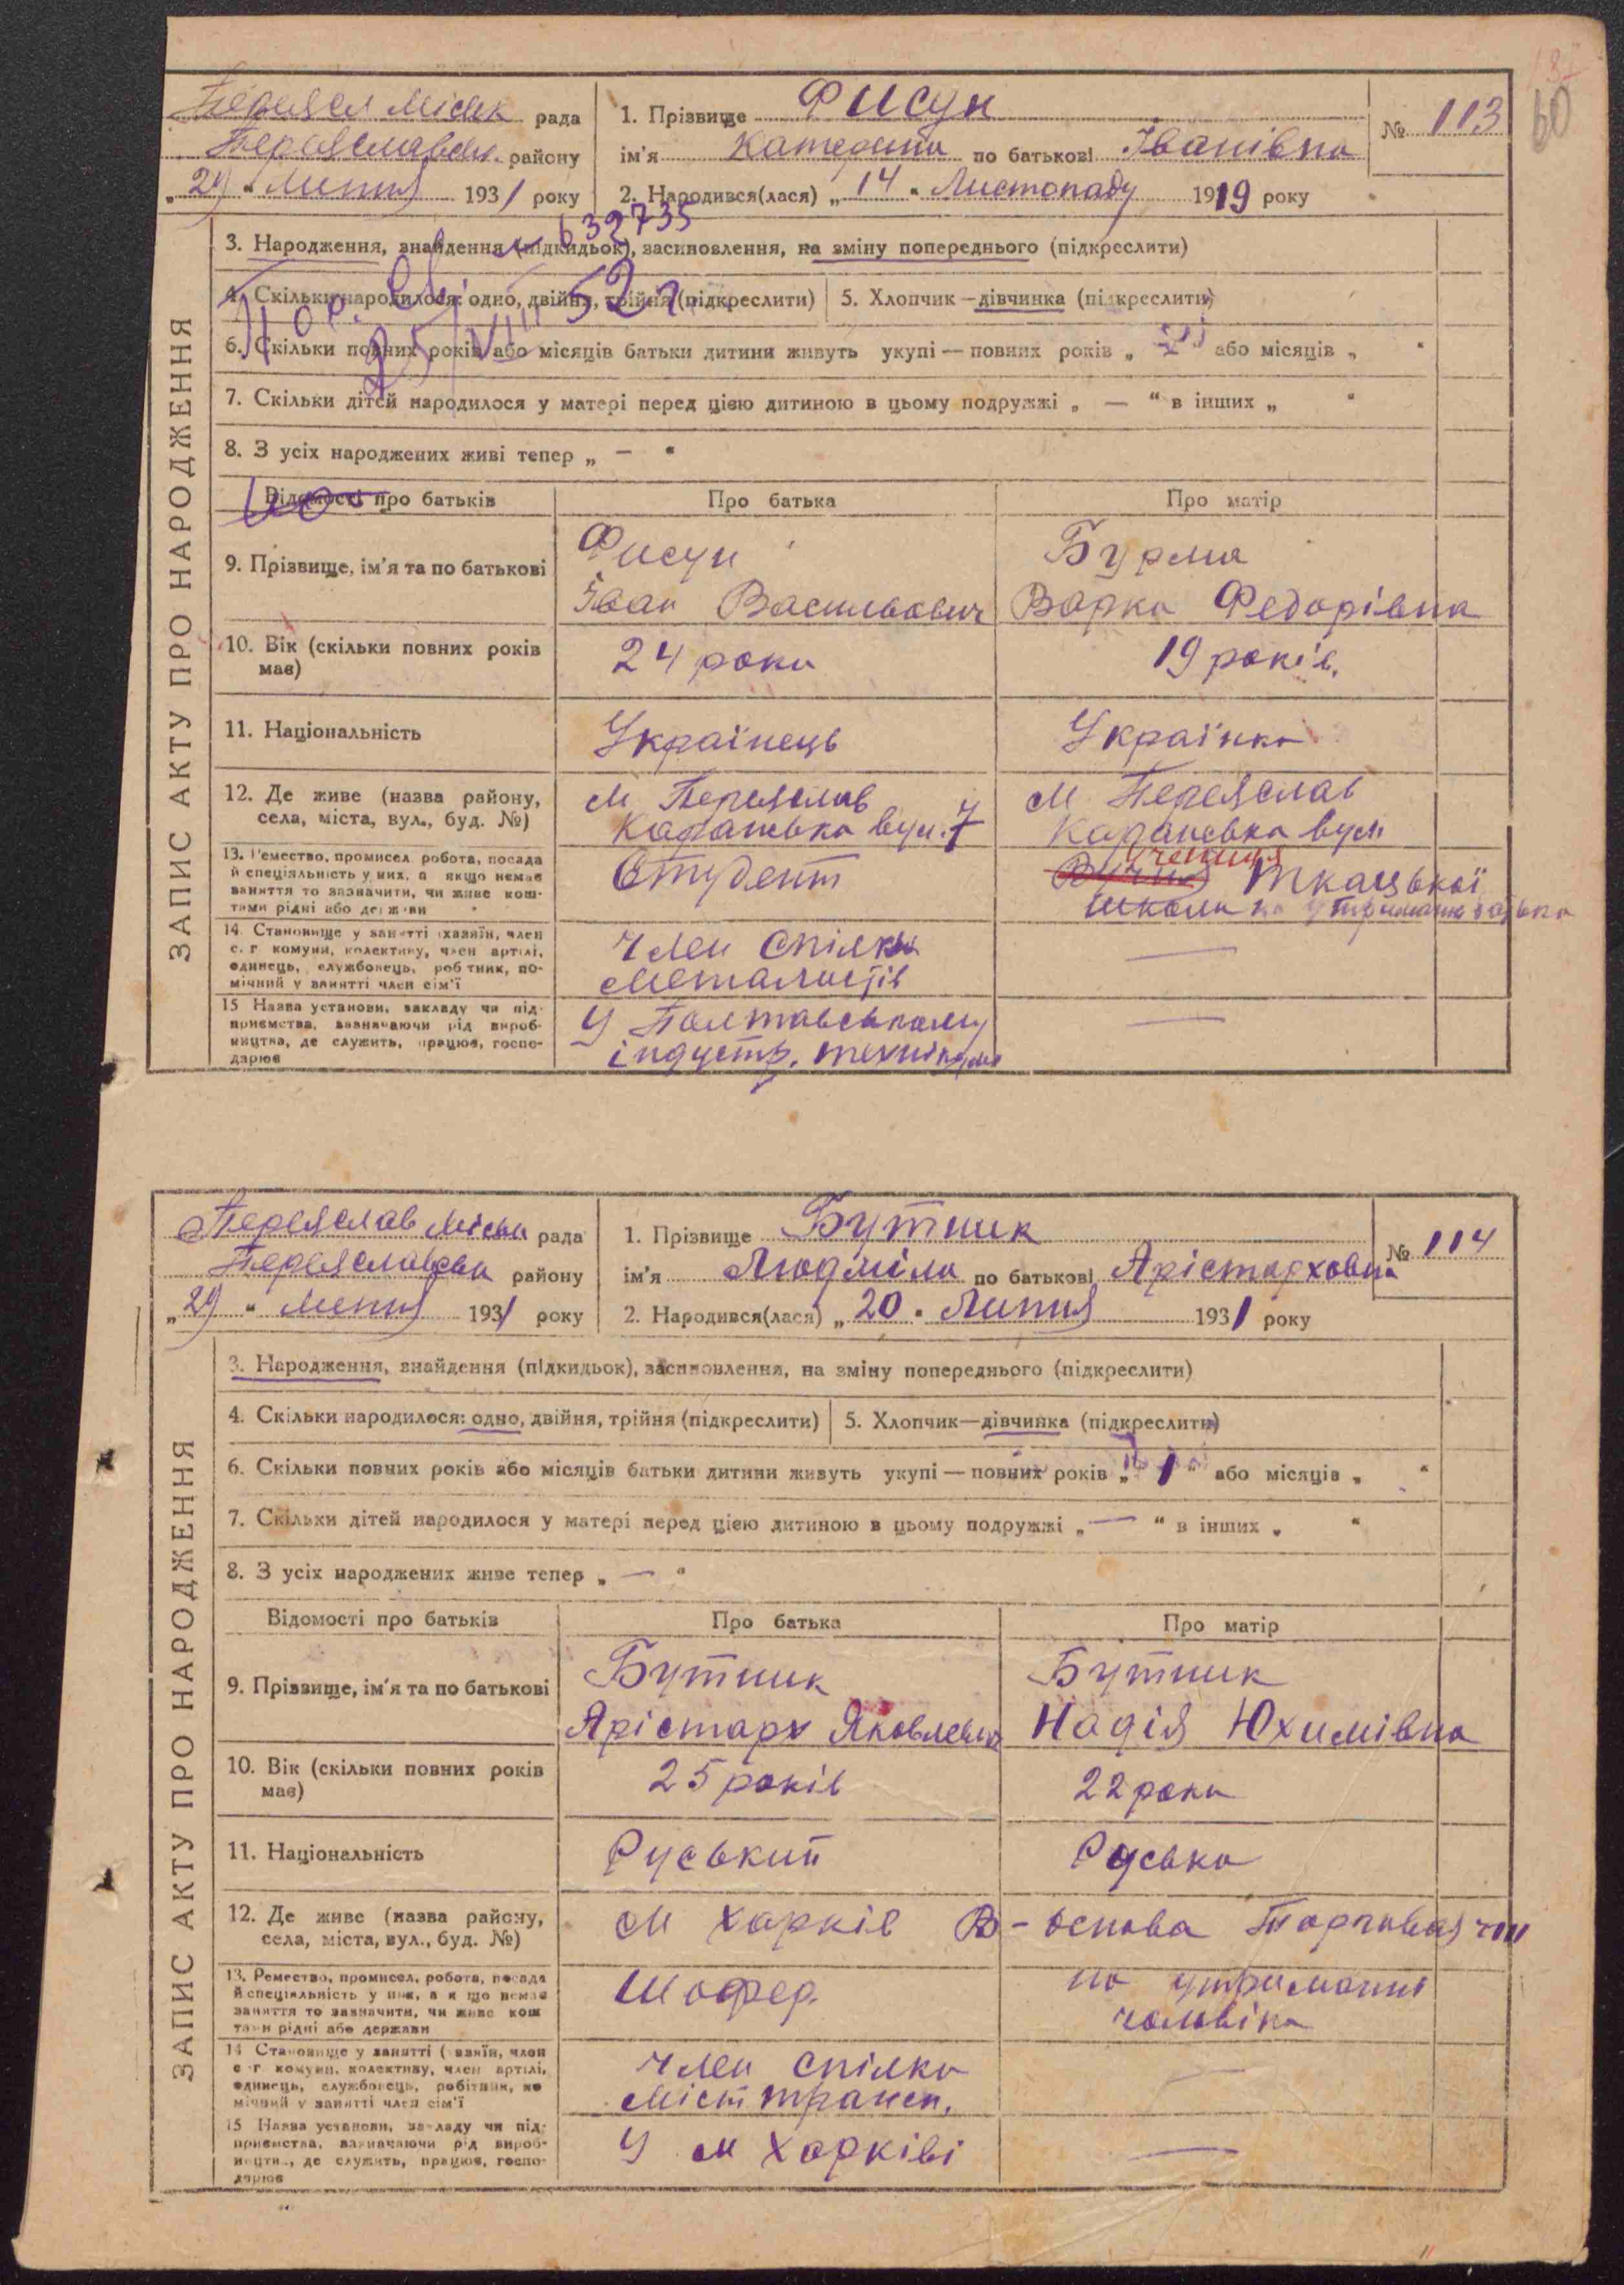 Переясл міськ рада
Переяславськ. району
„29 " липня 1931 року
1. Прізвище Фисун
ім'я Катерина по батькові Іванівна
2. Народився(лася) „ 14 " Листопаду 1919 року
№ 113
60
632735
3. Народження, знайдення (підкидьок), засиновлення, на зміну попереднього (підкреслити)
4. Скільки народилося: одно, двійня, трійня (підкреслити) 5. Хлопчик — дівчинка (підкреслити)
25/VIII 52 г.
6. Скільки повних років або місяців батьки дитини живуть укупі — повних років „ або місяців „ "
7. Скільки дітей народилося у матері перед цією дитиною в цьому подружжі „ — " в інших „ "
8. З усіх народжених живі тепер „ — "
Відомості про батьків Про батька Про матір
9. Прізвище, ім'я та по батькові
Фисун
Іван Васильович
Бурма
Варка Федорівна
10. Вік (скільки повних років має)
24 роки
19 років.
11. Національність
Українець
Українка
12. Де живе (назва району, села, міста, вул., буд. №)
м Переяслав
Каранська вул. 7
м Переяслав
Каранська вул
13. Ремество, промисел робота, посада й спеціяльність у них, а якщо немає заняття то зазначити, чи живе коштами рідні або держави
Студент
учениця
Ткацької
школи на утриманні батька
14 Становище у занятті (хазяїн, член с. г комуни, колективу, член артілі, одинець, службовець, робітник, помічний у занятті член сім'ї
член спілки
металистів
—
15 Назва установи, закладу чи підприємства, зазначаючи рід виробництва, де служить, працює, господарює
У Полтавському
індустр. технікумі
—
ЗАПИС АКТУ ПРО НАРОДЖЕННЯ
Переяслав міськ рада
Переяславськ району
„29 " липня 1931 року
1. Прізвище Бутник
ім'я Людміла по батькові Арістарховна
2. Народився(лася) „ 20 " Липня 1931 року
№ 114
3. Народження, знайдення (підкидьок), засиновлення, на зміну попереднього (підкреслити)
4. Скільки народилося: одно, двійня, трійня (підкреслити) 5. Хлопчик—дівчинка (підкреслити)
6. Скільки повних років або місяців батьки дитини живуть укупі — повних років „ 1 " або місяців „ "
7. Скільки дітей народилося у матері перед цією дитиною в цьому подружжі „ — " в інших „ "
8. З усіх народжених живе тепер „ — "
Відомості про батьків Про батька Про матір
9. Прізвище, ім'я та по батькові
Бутник
Арістарх Яковлевич
Бутник
Надія Юхимівна
10. Вік (скільки повних років має)
25 років
22 роки
11. Національність
Руський
Руська
12. Де живе (назва району, села, міста, вул., буд. №)
м Харків - Основа
13. Ремество, промисел, робота, посада й спеціяльність у них, а якщо немає заняття то зазначити, чи живе коштами рідні або держави
Шофер.
на утриманні
чоловіка
14 Становище у занятті (хазяїн, член с г комуни, колективу, член артілі, одинець, службовець, робітник, помічний у занятті член сім'ї
член спілки
місттрансп.
—
15 Назва установи, закладу чи підприємства, зазначаючи рід виробництва, де служить, працює, господарює
У м Харківі
—
ЗАПИС АКТУ ПРО НАРОДЖЕННЯ